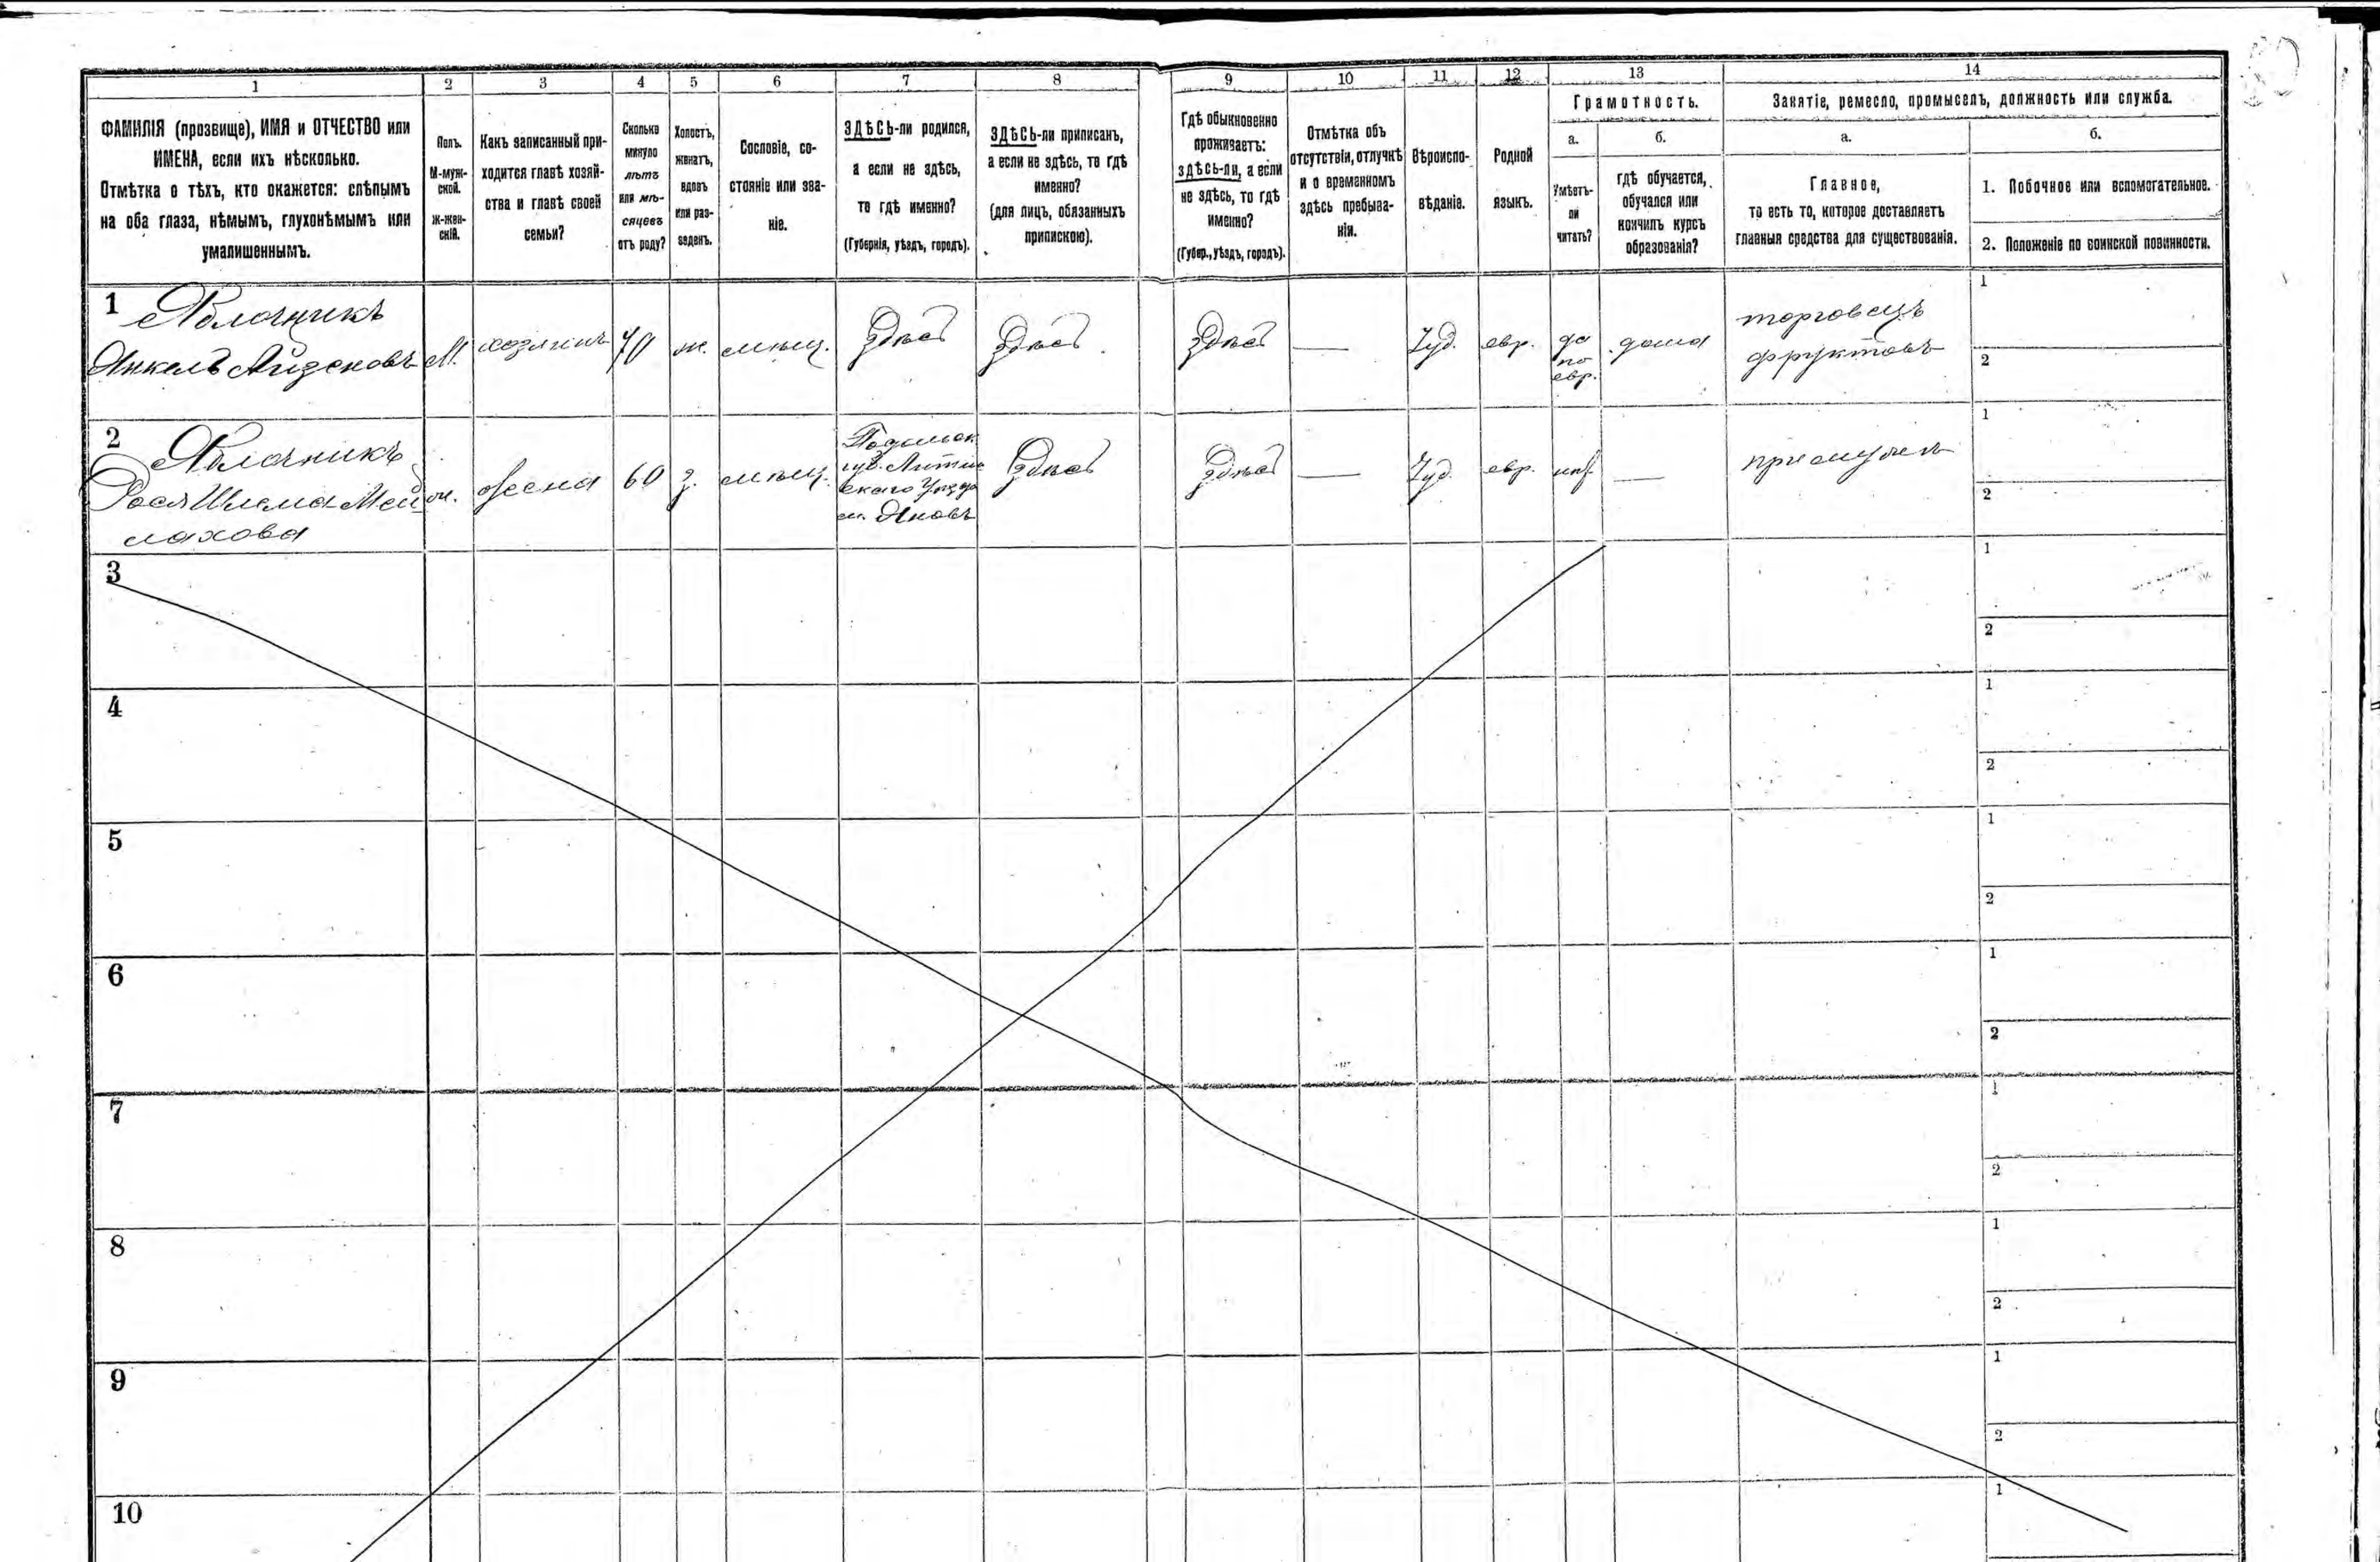 1 2 3 4 5 6 7 8 9 10 11 12 13 14
ФАМИЛІЯ (прозвище), ИМЯ и ОТЧЕСТВО или
ИМЕНА, если ихъ нѣсколько.
Отмѣтка о тѣхъ, кто окажется: слѣпымъ
на оба глаза, нѣмымъ, глухонѣмымъ или
умалишеннымъ.
Полъ.
М-муж-
ской.
Ж-жен-
скій.
Какъ записанный при-
ходится главѣ хозяй-
ства и главѣ своей
семьи?
Сколько
минуло
лѣтъ
или мѣ-
сяцевъ
отъ роду?
Холостъ,
женатъ,
вдовъ
или раз-
веденъ.
Сословіе, со-
стояніе или зва-
ніе.
ЗДѢСЬ-ли родился,
а если не здѣсь,
то гдѣ именно?
(Губернія, уѣздъ, городъ).
ЗДѢСЬ-ли приписанъ,
а если не здѣсь, то гдѣ
именно?
(для лицъ, обязанныхъ
припискою).
Гдѣ обыкновенно
проживаетъ:
здѣсь-ли, а если
не здѣсь, то гдѣ
именно?
(Губер., уѣздъ, городъ).
Отмѣтка объ
отсутствіи, отлучкѣ
и о временномъ
здѣсь пребыва-
ніи.
Вѣроиспо-
вѣданіе.
Родной
языкъ.
Грамотность.
а.
Умѣетъ-
ли
читать?
б.
гдѣ обучается,
обучался или
кончилъ курсъ
образованія?
Занятіе, ремесло, промыселъ, должность или служба.
а.
Главное,
то есть то, которое доставляетъ
главныя средства для существованія.
б.
1. Побочное или вспомогательное.
2. Положеніе по воинской повинности.
1 Яблочникъ
Янкель Айзековъ
М. хозяинъ 70 ж. мѣщ. Здѣсь Здѣсь Здѣсь — Іуд. евр.
да
по
евр.
дома
торговецъ
фруктовъ
1
2
2 Яблочникъ
Рося Шлема-Мей
лахова
ж. жена 60 з. мѣщ.
Подольск.
губ. Литин
скаго Уѣзда
м. Яновъ
Здѣсь Здѣсь — Іуд. евр. нѣт —
при мужѣ
1
2
3 1
2
4 1
2
5 1
2
6 1
2
7 1
2
8 1
2
9 1
2
10 1